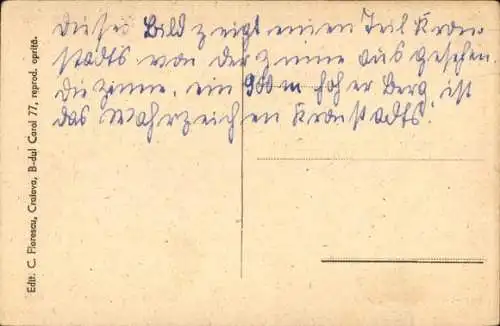 Dieses Bild zeigt einen Teil Kron
stadts von der Zinne aus gesehen.
Die Zinne, ein 900 m hoher Berg ist
das Wahrzeichen Kronstadts.
Edit. C. Florescu, Craiova, B-dul Carol 77, reprod. oprită.